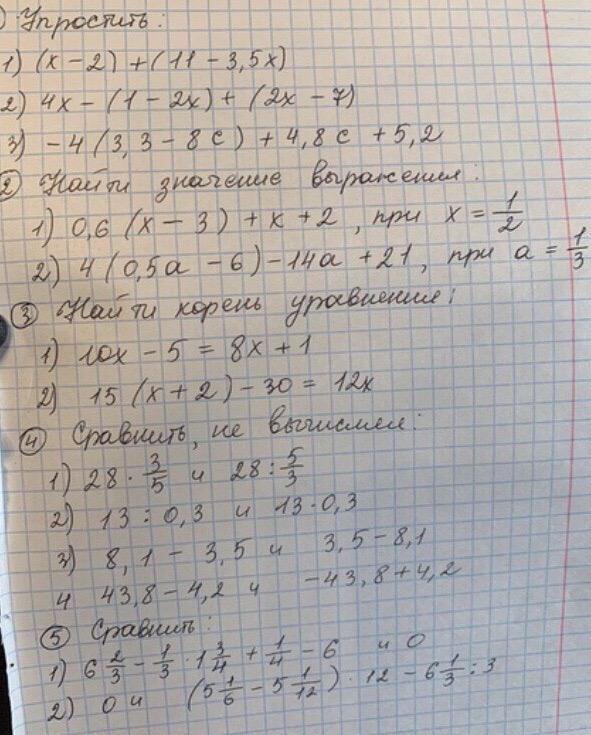 ) Упростить:
1) (x - 2) + (11 - 3,5x)
2) 4x - (1 - 2x) + (2x - 7)
3) -4 (3,3 - 8c) + 4,8c + 5,2
② Найти значение выражения:
1) 0,6 (x - 3) + x + 2, при x = 1/2
2) 4 (0,5a - 6) - 14a + 21, при a = 1/3
③ Найти корень уравнения:
1) 10x - 5 = 8x + 1
2) 15 (x + 2) - 30 = 12x
④ Сравнить, не вычисляя:
1) 28 · 3/5 и 28 : 5/3
2) 13 : 0,3 и 13 · 0,3
3) 8,1 - 3,5 и 3,5 - 8,1
4 43,8 - 4,2 и -43,8 + 4,2
⑤ Сравнить:
1) 6 2/3 - 1/3 · 1 3/4 + 1/4 - 6 и 0
2) 0 и (5 1/6 - 5 1/12) · 12 - 6 1/3 : 3